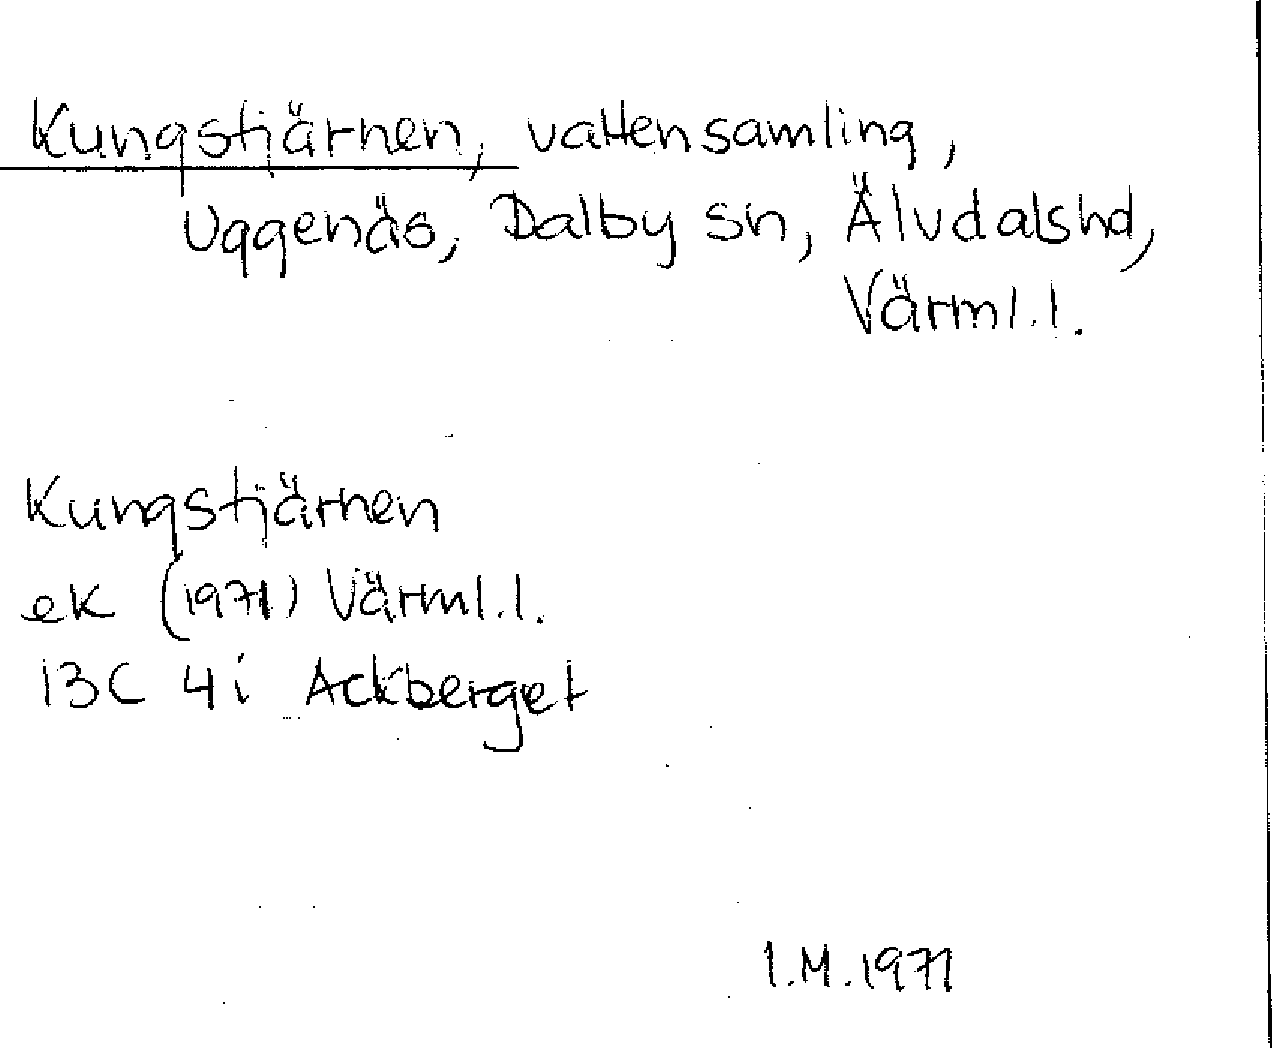 Kungstjärnen, vattensamling,
Uggenäs, Dalby sn, Älvdalshd,
Värml.l.
Kungstjärnen
ek (1971) Värml.l.
13C 4i Ackberget
I.M.1971